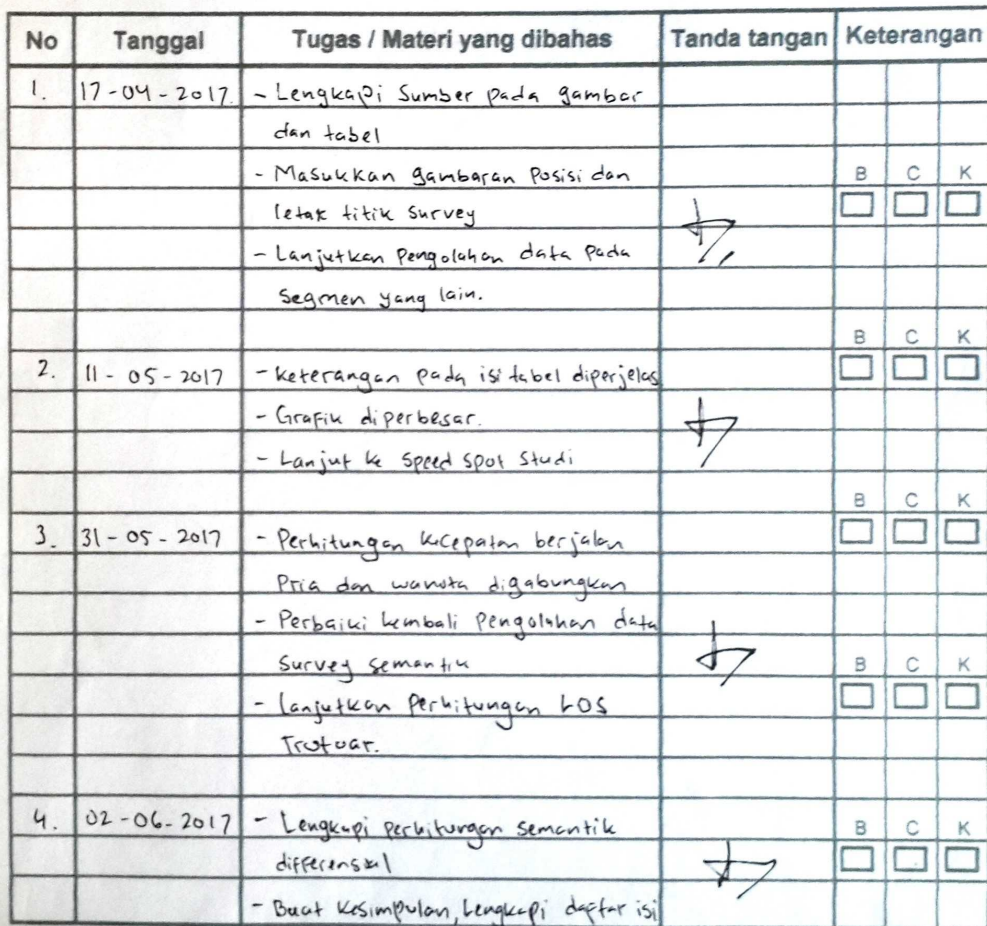 No Tanggal Tugas / Materi yang dibahas Tanda tangan Keterangan
1. 17-04-2017. - Lengkapi Sumber pada gambar
dan tabel
- Masukkan gambaran Posisi dan
B C K
letak titik survey
- Lanjutkan Pengolahan data Pada
Segmen yang lain.
B C K
2. 11-05-2017 - Keterangan pada isi tabel diperjelas
- Grafik diperbesar.
- Lanjut ke Speed Spot Studi
B C K
3. 31-05-2017 - Perhitungan kecepatan berjalan
Pria dan wanita digabungkan
- Perbaiki kembali Pengolahan data
Survey semantik
B C K
- Lanjutkan Perhitungan LOS
Trotoar.
4. 02-06-2017 - Lengkapi perhitungan semantik
B C K
differensial
- Buat kesimpulan, Lengkapi daftar isi